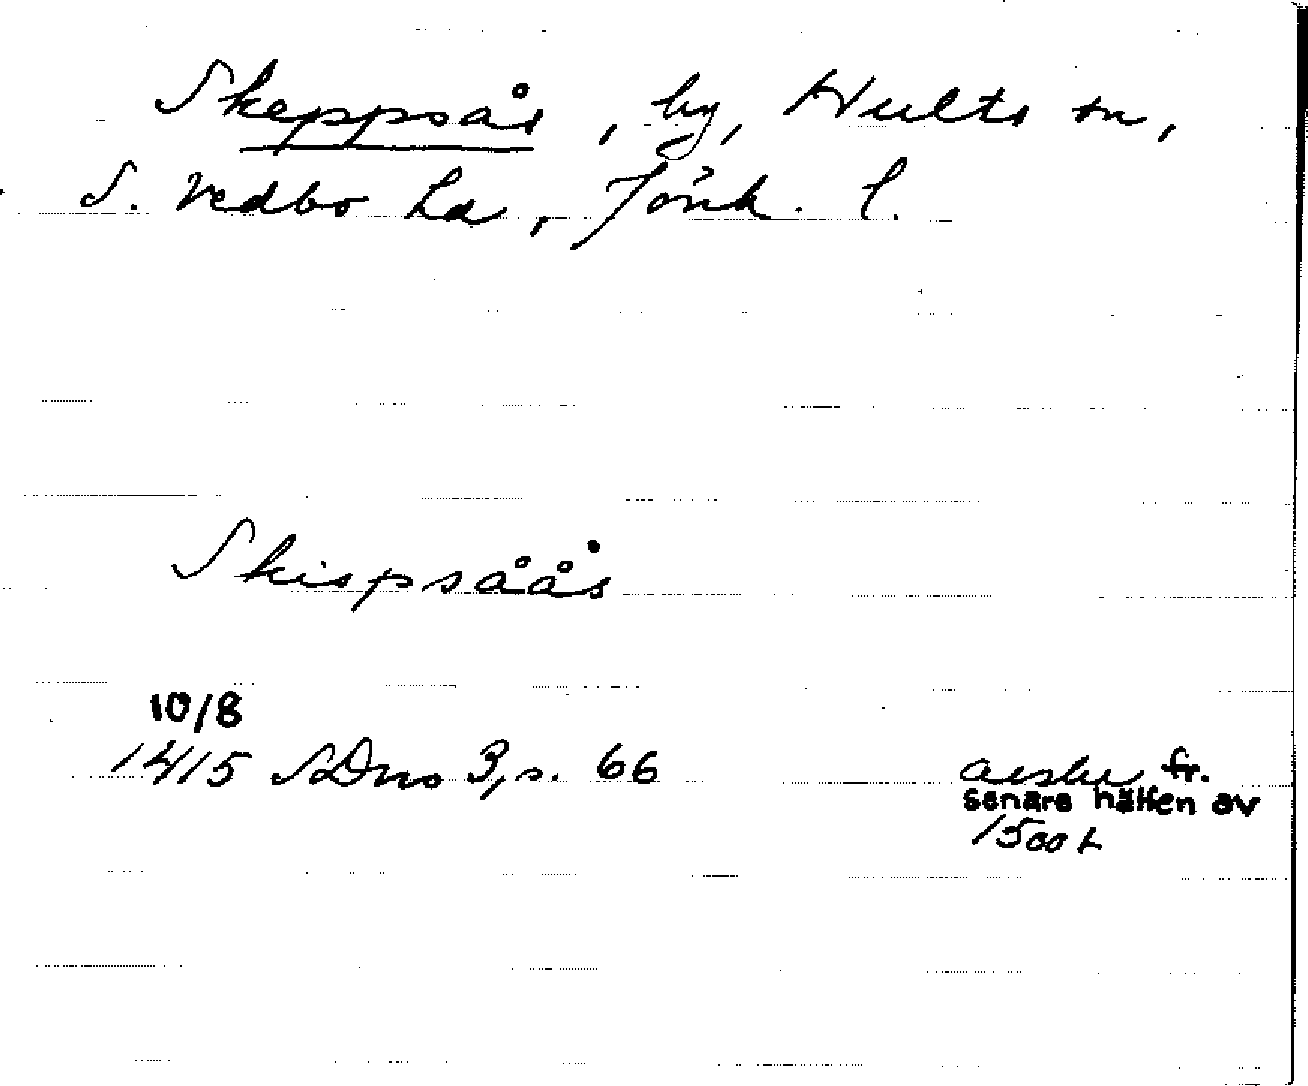 Skeppsås, by, Hults sn,
S. Vedbo hd, Jönk. l.
Skispsåås
10/8
1415 SDns 3, s. 66 avskr fr.
senare hälften av
1500 t